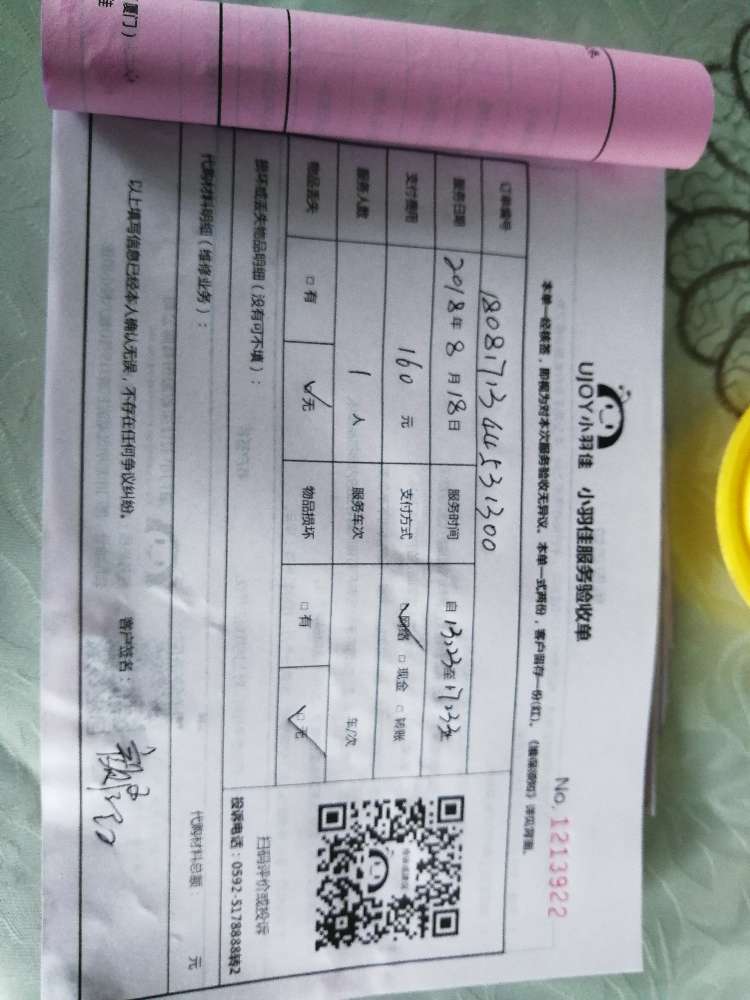 厦门）
佳
UJOY小羽佳 小羽佳服务验收单
No. 1213922
本单一经核签，即视为对本次服务验收无异议。本单一式两份，客户留存一份(红)。《维保须知》详见背面。
订单编号 1808171344531300
服务日期 2018年8月18日 服务时间 自13:23至17:33
支付费用 160元 支付方式 网络 □现金 □转账
服务人数 1人 服务车次 车/次
物品丢失 □有 无 物品损坏 □有 □无
损坏或丢失物品明细（没有可不填）：
扫码评价或投诉
投诉电话：0592-5178888转2
代购材料明细（维修业务）： 代购材料总额： 元
以上填写信息已经本人确认无误，不存在任何争议纠纷。 客户签名：